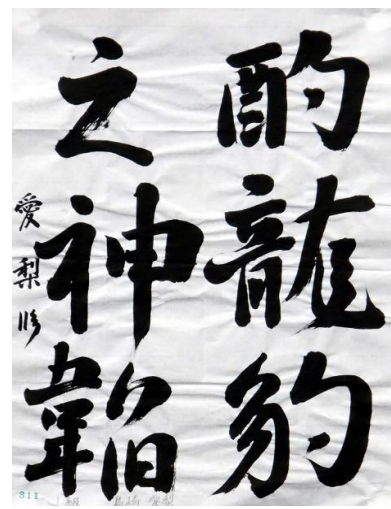 酌龍豹
之神韜
愛梨臨
811